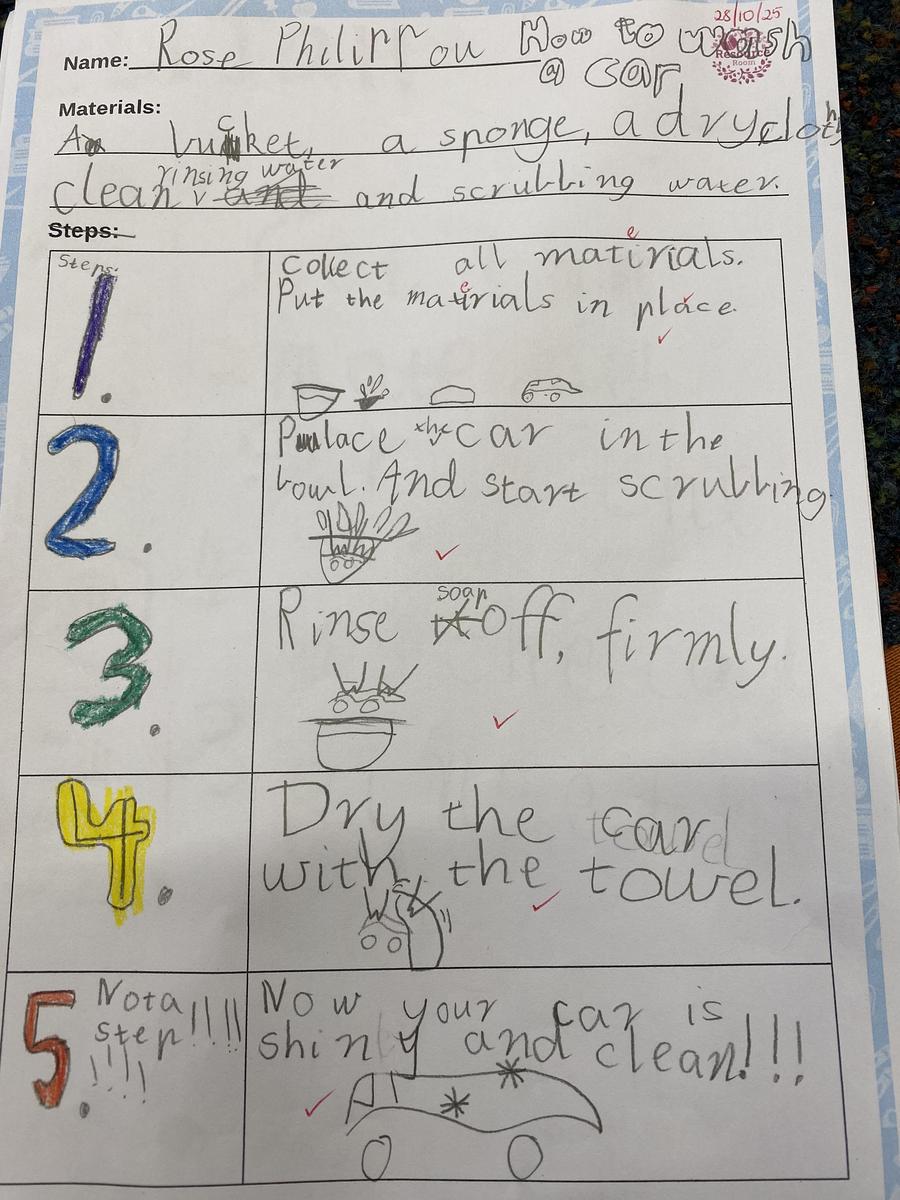 28/10/25
Name: Rose Philippou How to wash
a car
Resource
Room
Materials:
A bucket, a sponge, a dry cloth,
clean rinsing water and scrubbing water.
Steps:
Steps:
1.
Collect all matirials.
Put the matirials in place.
2.
Place the car in the
bowl. And start scrubbing.
3.
Rinse soap off, firmly.
4.
Dry the car
with the towel.
5.
Not a
step!!!!
!!!!
Now your car is
shiny and clean!!!